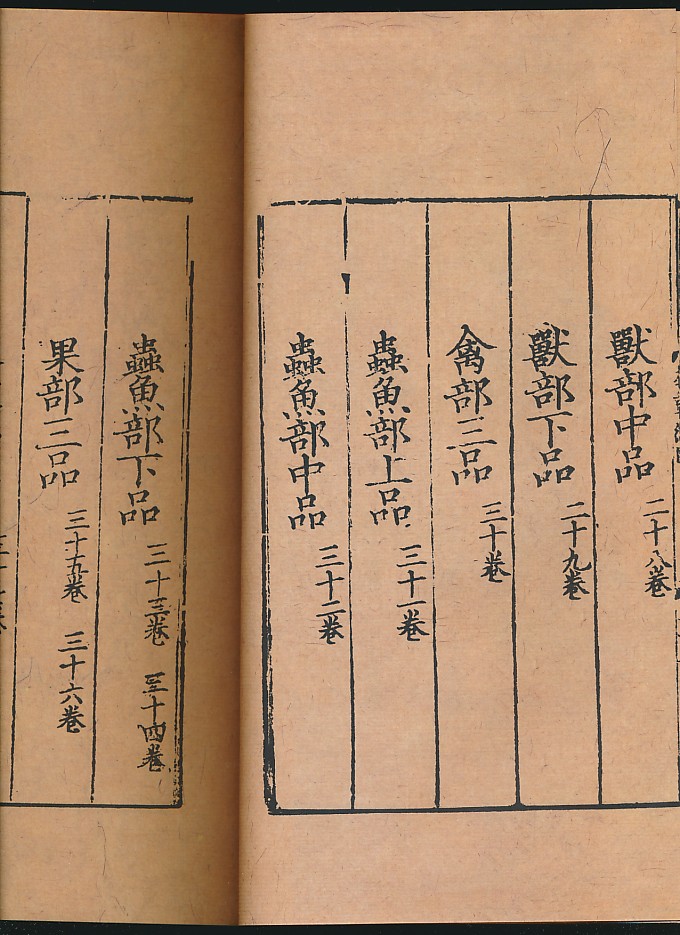 獸部中品 二十八卷
獸部下品 二十九卷
禽部三品 三十卷
蟲魚部上品 三十一卷
蟲魚部中品 三十二卷
蟲魚部下品 三十三卷 三十四卷
果部三品 三十五卷 三十六卷